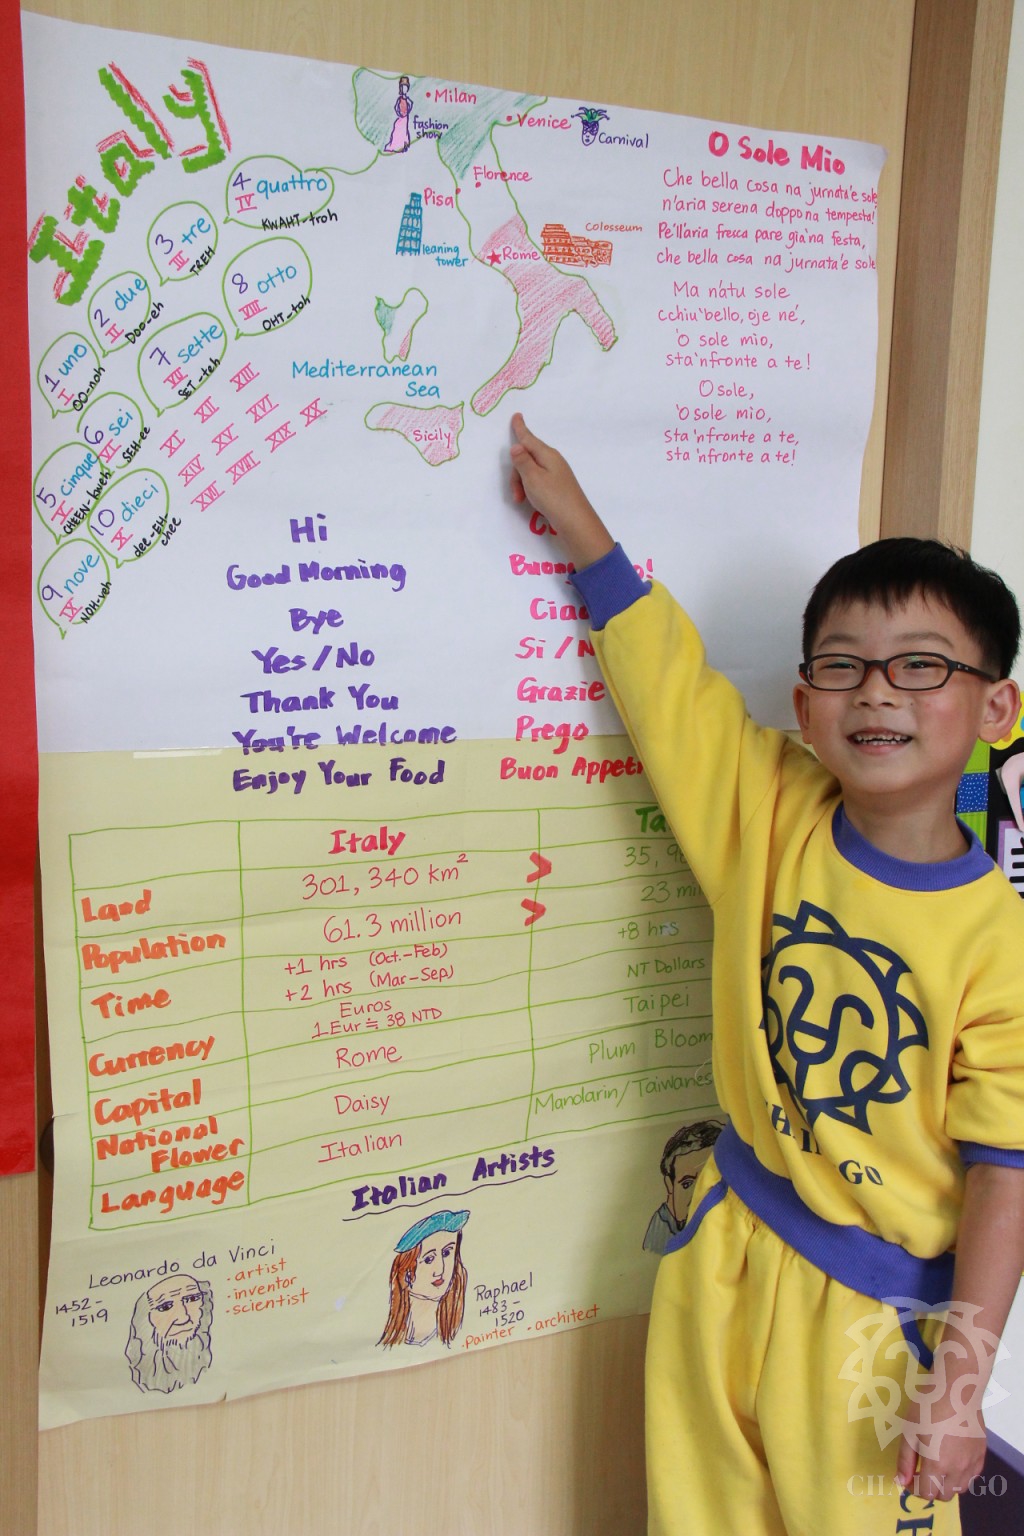 Italy
Milan
fashion
show
Venice
Carnival
Florence
Pisa
leaning
tower
Colosseum
Rome
Mediterranean
Sea
Sicily
1 uno
I
OO-noh
2 due
II
DOO-eh
3 tre
III
TREH
4 quattro
IV
KWAHT-troh
5 cinque
V
CHEEN-kweh
6 sei
VI
SEH-ee
7 sette
VII
SET-teh
8 otto
VIII
OHT-toh
9 nove
IX
NOH-veh
10 dieci
X
dee-EH-
chee
XI XII XIII
XIV XV XVI
XVII XVIII XIX XX
O Sole Mio
Che bella cosa na jurnata'e sole
n'aria serena doppo na tempesta!
Pe'll'aria fresca pare gia'na festa,
che bella cosa na jurnata'e sole
Ma n'atu sole
cchiu'bello, oje ne',
'O sole mio,
sta'nfronte a te!
O sole,
'O sole mio,
sta'nfronte a te,
sta'nfronte a te!
Hi
Good Morning
Bye
Yes/No
Thank You
You're Welcome
Enjoy Your Food
Buon
Ciao
Si / N
Grazie
Prego
Buon Appeti
Italy
Land 301, 340 km² > 35, 9
Population 61.3 million > 23 mil
Time +1 hrs (Oct.-Feb) +8 hrs
+2 hrs (Mar-Sep)
Currency Euros NT Dollars
1 Eur ≒ 38 NTD
Capital Rome Taipei
National
Flower Daisy Plum Bloom
Language Italian Mandarin/Taiwanes
Italian Artists
Leonardo da Vinci
1452-
1519
·artist
·inventor
·scientist
Raphael
1483-
1520
·Painter ·architect
CHAIN-GO
CHAIN-GO